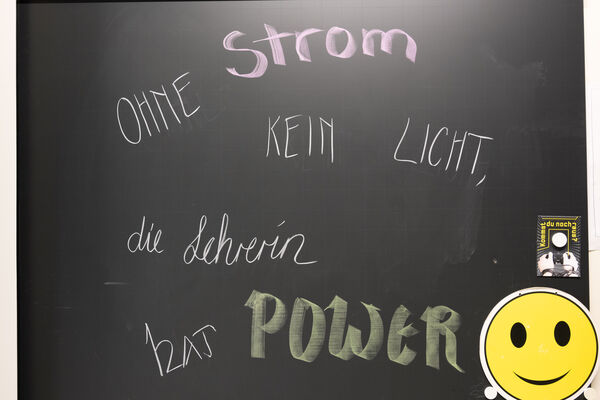 Strom
OHNE KEIN LICHT,
die Lehrerin
hat POWER
Kommst
du noch
raus?